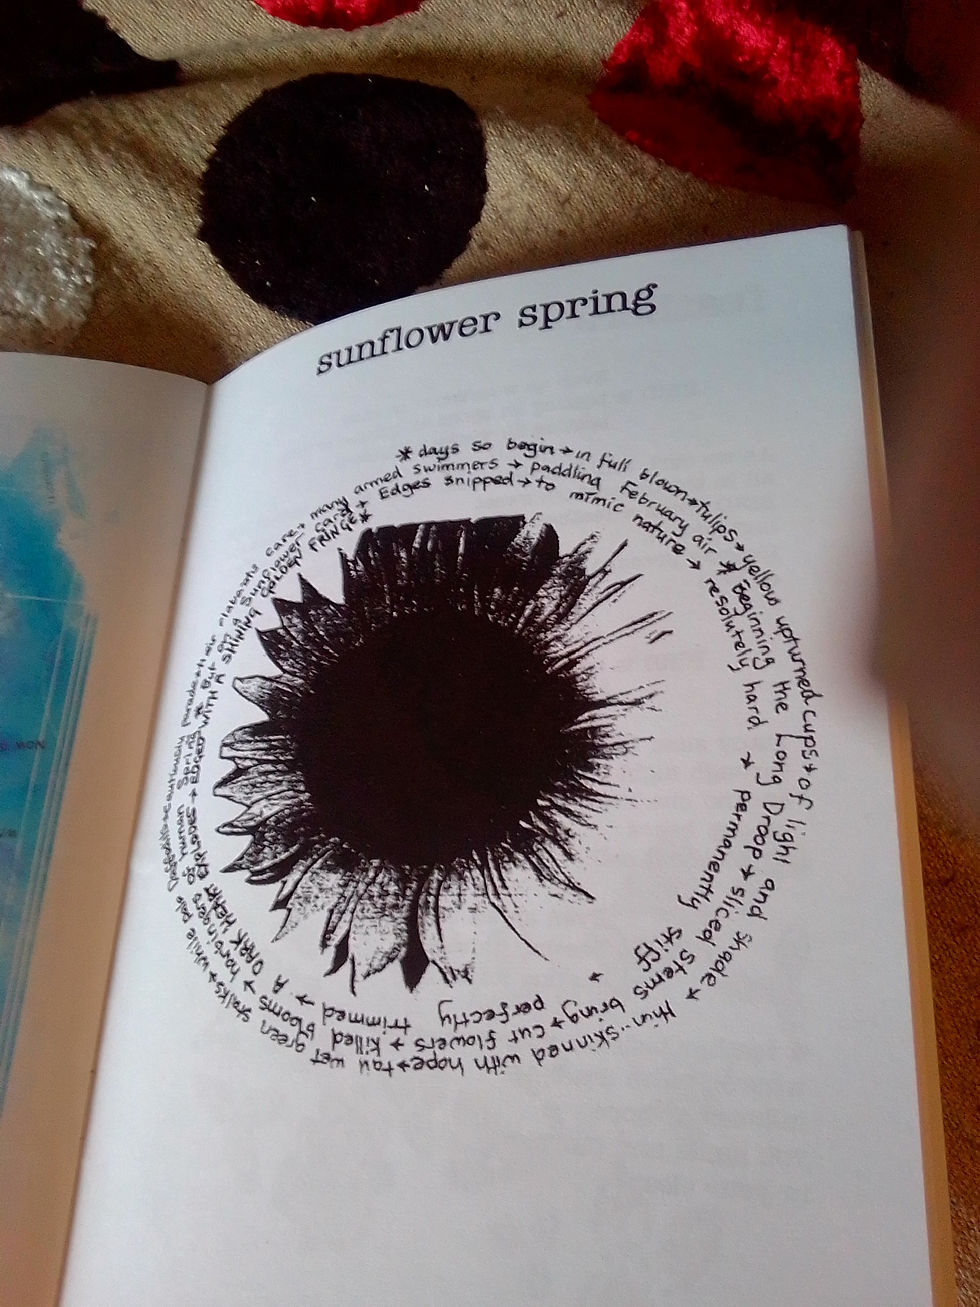 sunflower spring
*days so begin → in full blown → tulips → yellow upturned cups → of light and shade → thin-skinned with hope → tall wet green stalks → while pale Daffodils → cautiously parade → their elaborate care →
many armed swimmers → paddling February air * Beginning the Long Droop → sliced stems bring → cut flowers → killed blooms → harbingers so human Spring * But on a Sunflower card →
Edges snipped → to mimic nature → resolutely hard → permanently stiff * perfectly trimmed → A DARK HEART EXPLODES → EDGED WITH A SHINING GOLDEN FRINGE*